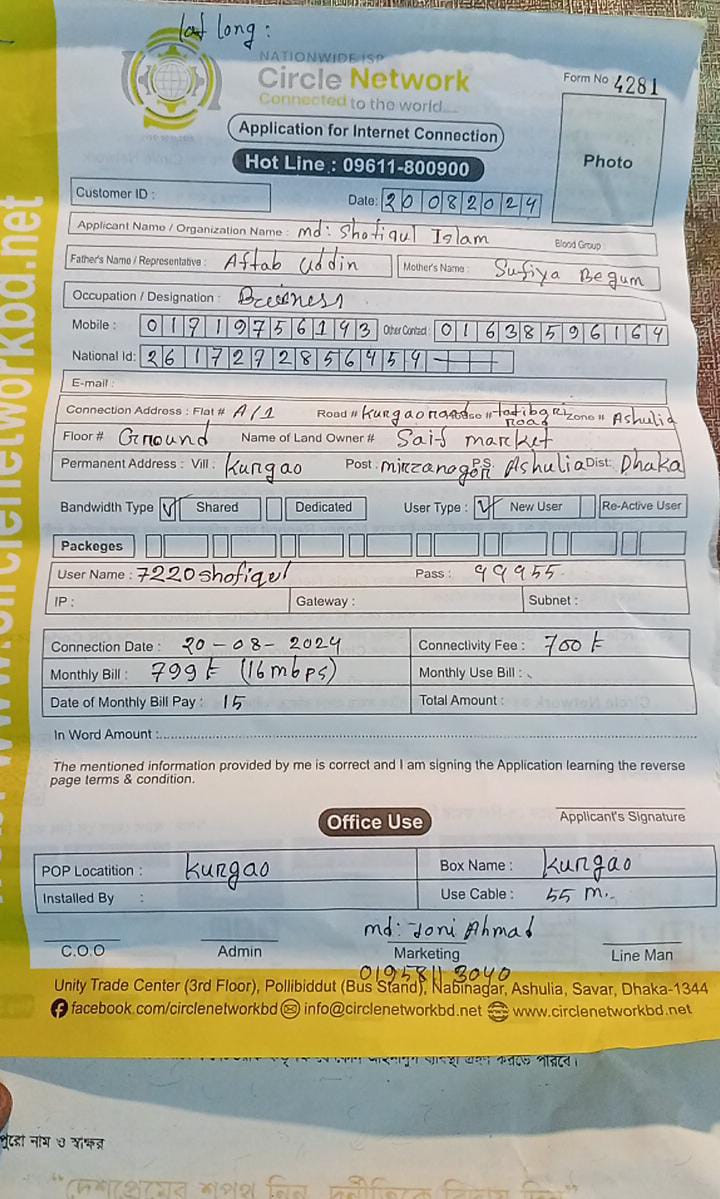 lat long :
NATIONWIDE ISP
Circle Network
Connected to the world....
Form No 4281
Application for Internet Connection
Hot Line : 09611-800900
Photo
Customer ID :
Date: 20 08 2024
Applicant Name / Organization Name : md: Shofiqul Islam Blood Group :
Father's Name / Representative : Aftab Uddin Mother's Name : Sufiya Begum
Occupation / Designation : Business
Mobile : 01719756193 Other Contact : 01638596164
National Id: 2617292856454
E-mail :
Connection Address : Flat # A/1 Road # Kurgao road Zone # Ashulia
Floor # Ground Name of Land Owner # Saif market
Permanent Address : Vill : Kurgao Post : mirzanagor P.S Ashulia Dist: Dhaka
Bandwidth Type ✓ Shared Dedicated User Type : ✓ New User Re-Active User
Packeges
User Name : 7220shofiqul Pass : 99955
IP : Gateway : Subnet :
Connection Date : 20-08-2024 Connectivity Fee : 700 t
Monthly Bill : 799 t (16 mbps) Monthly Use Bill :
Date of Monthly Bill Pay : 15 Total Amount :
In Word Amount :
The mentioned information provided by me is correct and I am signing the Application learning the reverse
page terms & condition.
Applicant's Signature
Office Use
POP Locatition : Kurgao Box Name : Kurgao
Installed By : Use Cable : 55 m.
md: Joni Ahmad
C.O.O Admin Marketing Line Man
01958113040
Unity Trade Center (3rd Floor), Pollibiddut (Bus Stand), Nabinagar, Ashulia, Savar, Dhaka-1344
facebook.com/circlenetworkbd info@circlenetworkbd.net www.circlenetworkbd.net
www.circlenetworkbd.net
পুরো নাম ও স্বাক্ষর